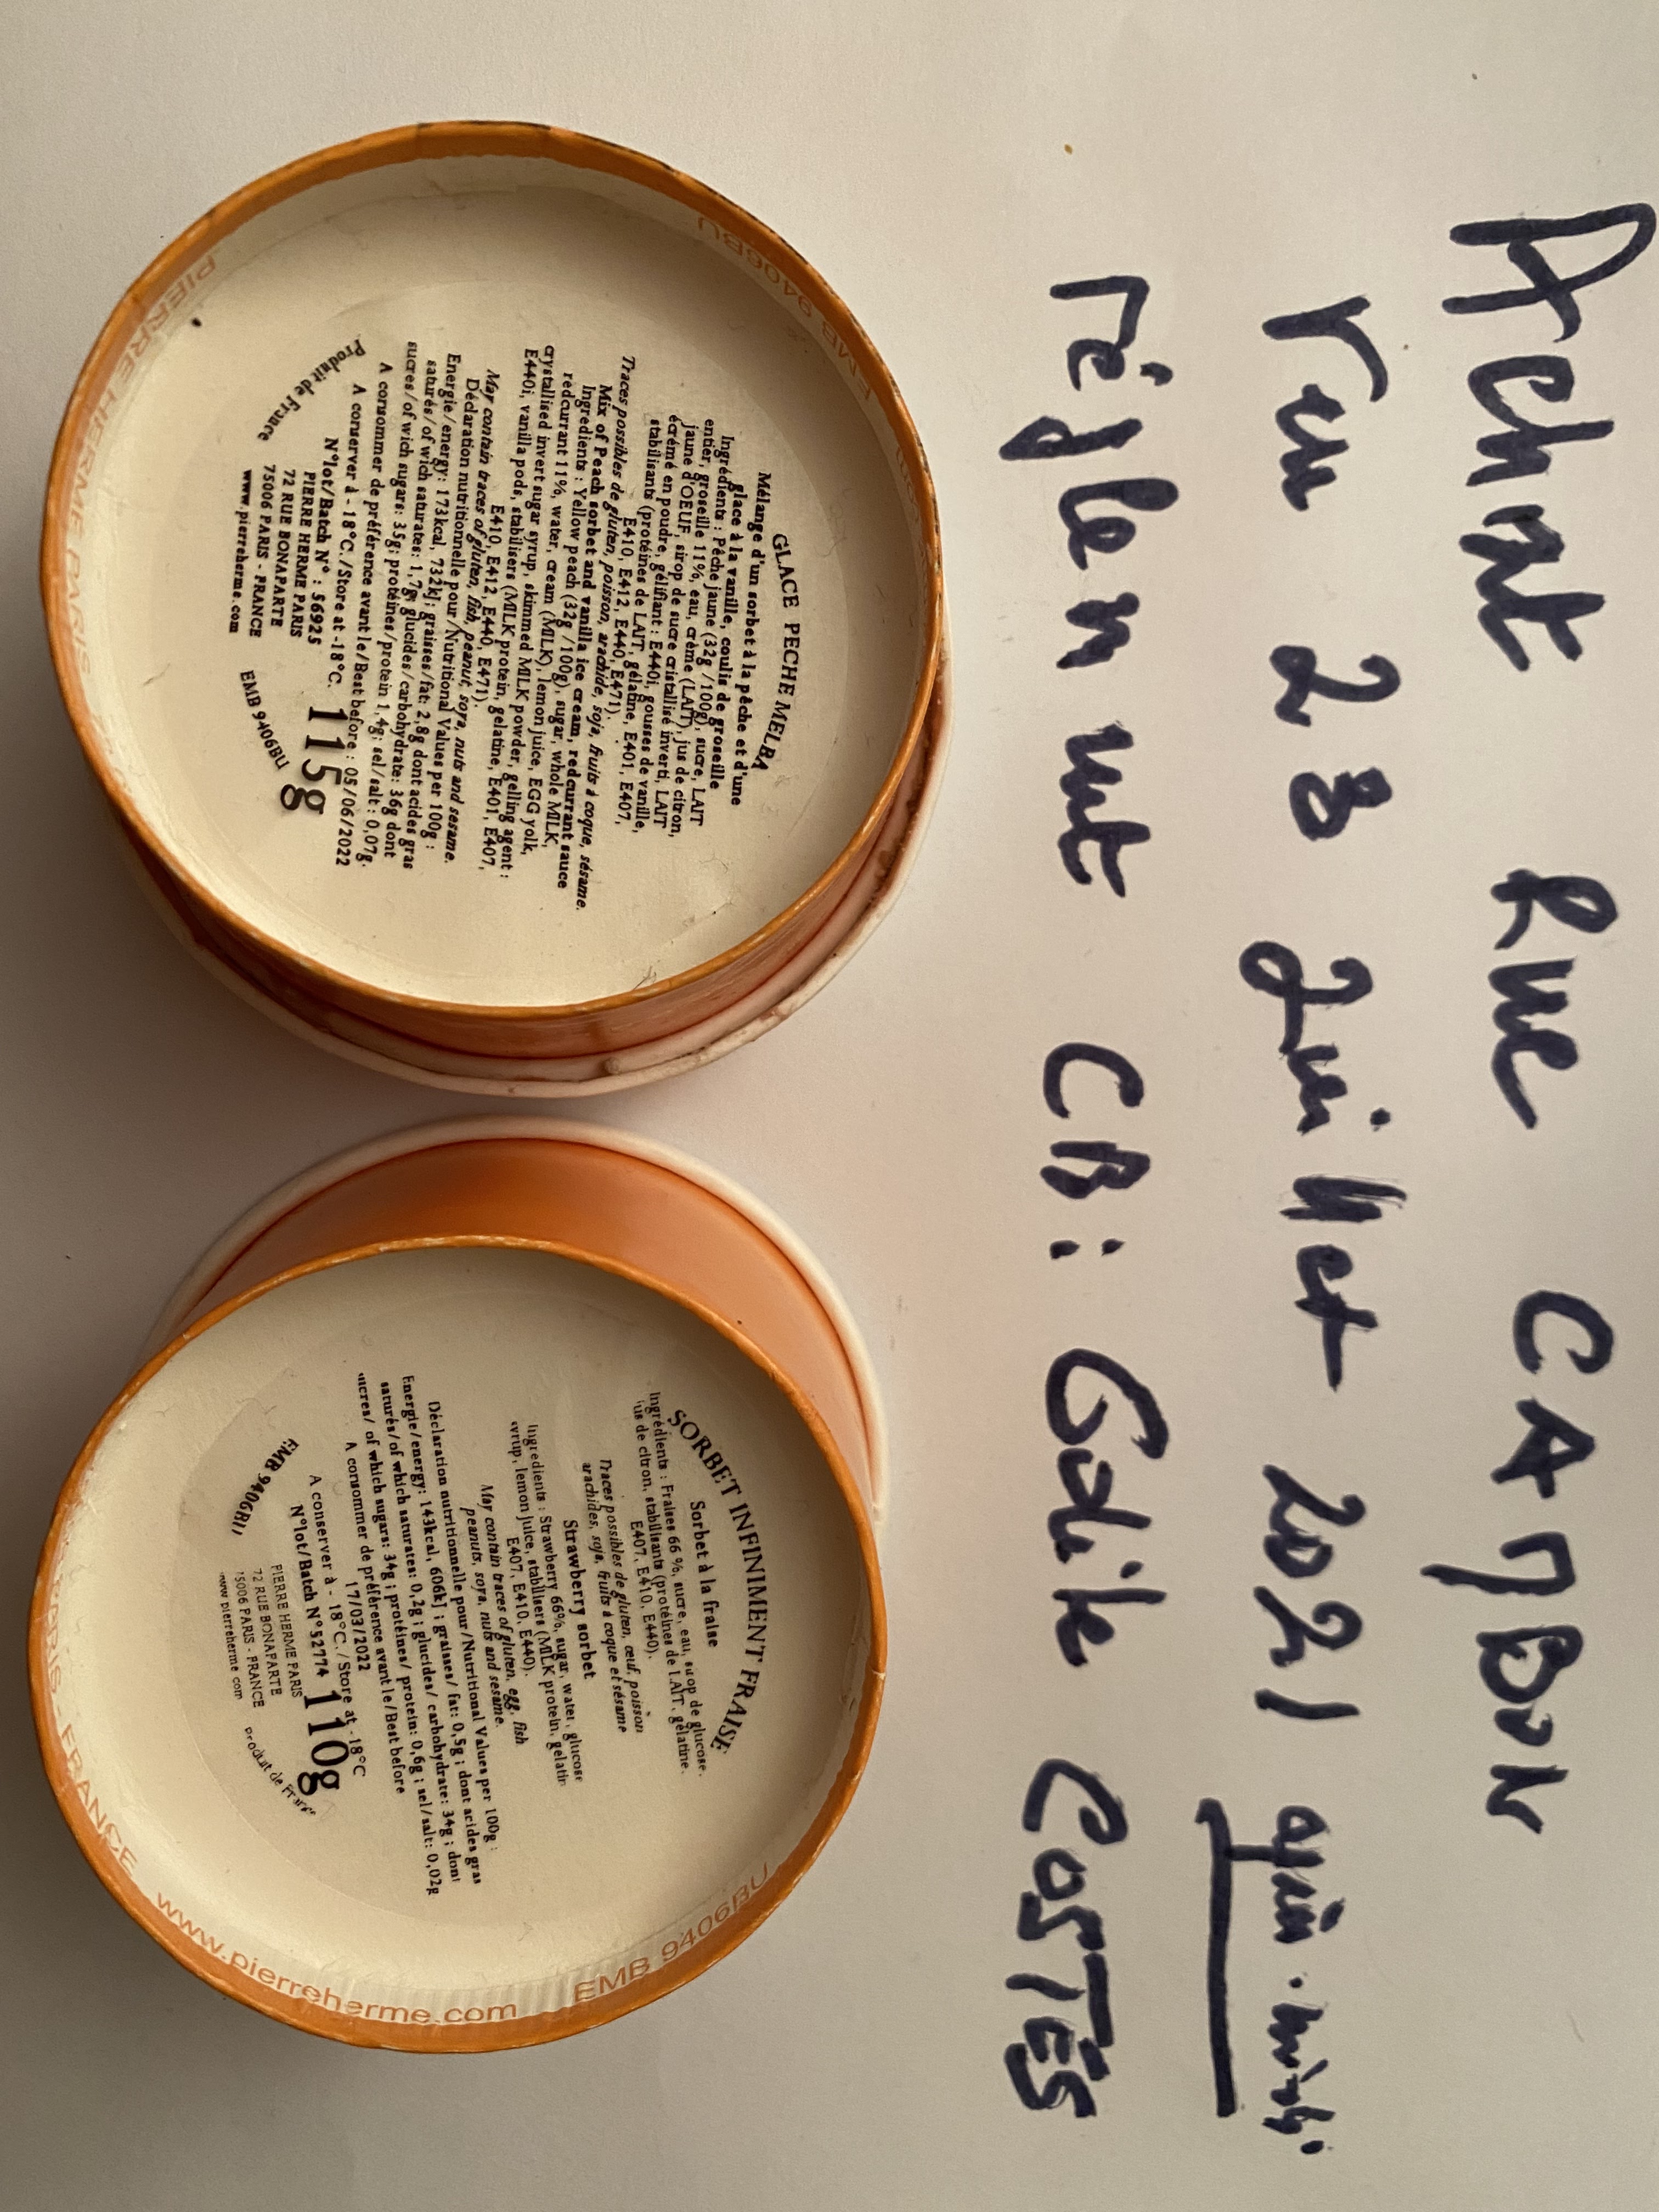 Achat Rue CAMBON
Ven 28 Juillet 2021 après.midi
réglement CB: Odile COSTES
GLACE PECHE MELBA
Mélange d'un sorbet à la pêche et d'une
glace à la vanille, coulis de groseille
Ingrédients : Pêche jaune (32g /100g), sucre, LAIT
entier, groseille 11%, eau, crème (LAIT), jus de citron,
jaune d'OEUF, sirop de sucre cristallisé inverti, LAIT
écrémé en poudre, gélifiant : E440i, gousses de vanille,
stabilisants (protéines de LAIT, gélatine, E401, E407,
E410, E412, E440, E471).
Traces possibles de gluten, poisson, arachide, soja, fruits à coque, sésame.
Mix of Peach sorbet and vanilla ice cream, redcurrant sauce
Ingredients : Yellow peach (32g /100g), sugar, whole MILK,
redcurrant 11%, water, cream (MILK), lemon juice, EGG yolk,
crystallised invert sugar syrup, skimmed MILK powder, gelling agent :
E440i, vanilla pods, stabiliers (MLK protein, gelatine, E401, E407,
E410, E412, E440, E471).
May contain traces of gluten, fish, peanut, soya, nuts and sesame.
Déclaration nutritionnelle pour/Nutritional Values per 100g :
Energie/energy: 173kcal, 732kJ; graisses/fat: 2,8g dont acides gras
saturés/of wich saturates: 1,7g; glucides/carbohydrate: 36g dont
sucres/of wich sugars: 35g; protéines/protein 1,4g; sel/salt: 0,07g.
A consommer de préférence avant le/Best before : 05/06/2022
A conserver à - 18°C./Store at -18°C.
N°lot/Batch N° : 56925 115g
PIERRE HERME PARIS
72 RUE BONAPARTE
75006 PARIS - FRANCE
www.pierreherme.com
Produit de France
EMB 9406BU
PIERRE HERME PARIS
EMB 9406BU
SORBET INFINIMENT FRAISE
Sorbet à la fraise
Ingrédients : Fraises 66 %, sucre, eau, sirop de glucose,
jus de citron, stabilisants (protéines de LAIT, gélatine,
E407, E410, E440).
Traces possibles de gluten, œuf, poisson
arachides, soja, fruits à coque et sésame
Strawberry sorbet
Ingredients : Strawberry 66%, sugar, water, glucose
syrup, lemon juice, stabilisers (MILK protein, gelatin
E407, E410, E440).
May contain traces of gluten, egg, fish
peanuts, soya, nuts and sesame.
Déclaration nutritionnelle pour/Nutritional Values per 100g :
Energie/energy: 143kcal, 606kJ ; graisses/ fat: 0,5g ; dont acides gras
saturés/of which saturates: 0,2g ; glucides/ carbohydrate: 34g ; dont
sucres/ of which sugars: 34g ; protéines/ protein: 0,6g ; sel/salt: 0,02g
A consommer de préférence avant le/Best before
17/03/2022
A conserver à - 18°C. / Store at - 18°C
N°lot/Batch N°52774 110g
PIERRE HERME PARIS
72 RUE BONAPARTE
75006 PARIS - FRANCE
www.pierreherme.com
EMB 9406BU
Produit de France
PARIS - FRANCE www.pierreherme.com EMB 9406BU